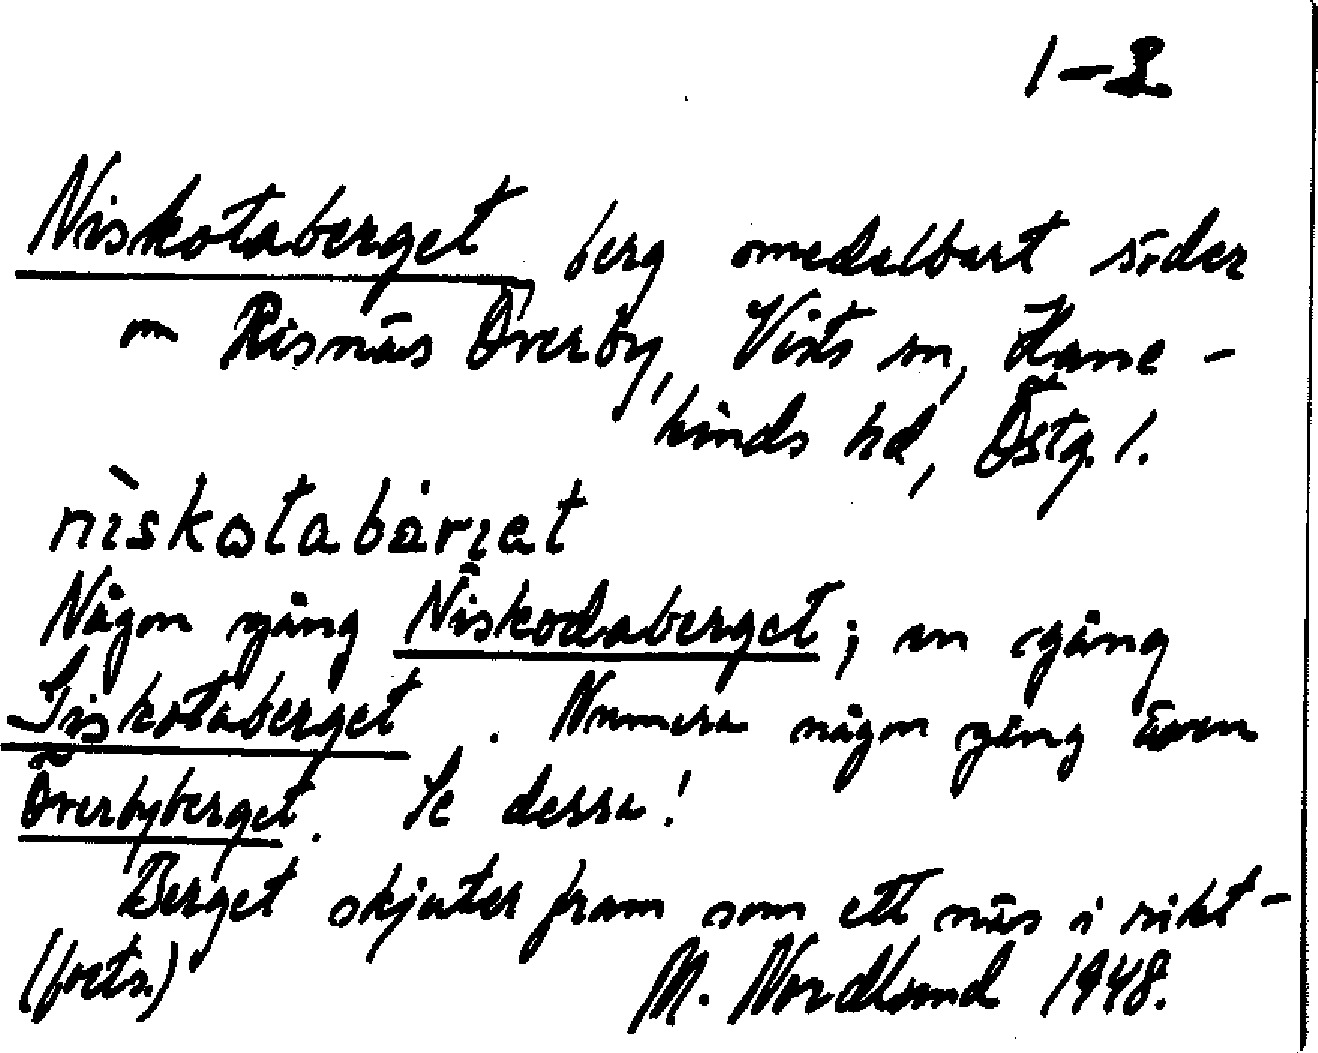 1-2
Niskotaberget, berg omedelbart söder
om Risnäs Överby, Vists sn, Hane-
kinds hd, Östg. l.
nìskotabärjet
Någon gång Niskodaberget; en gång
Giskotaberget. Numera någon gång även
Överbyberget. Se dessa!
Berget skjuter fram som ett näs i rikt-
(forts.) M. Nordlund 1948.